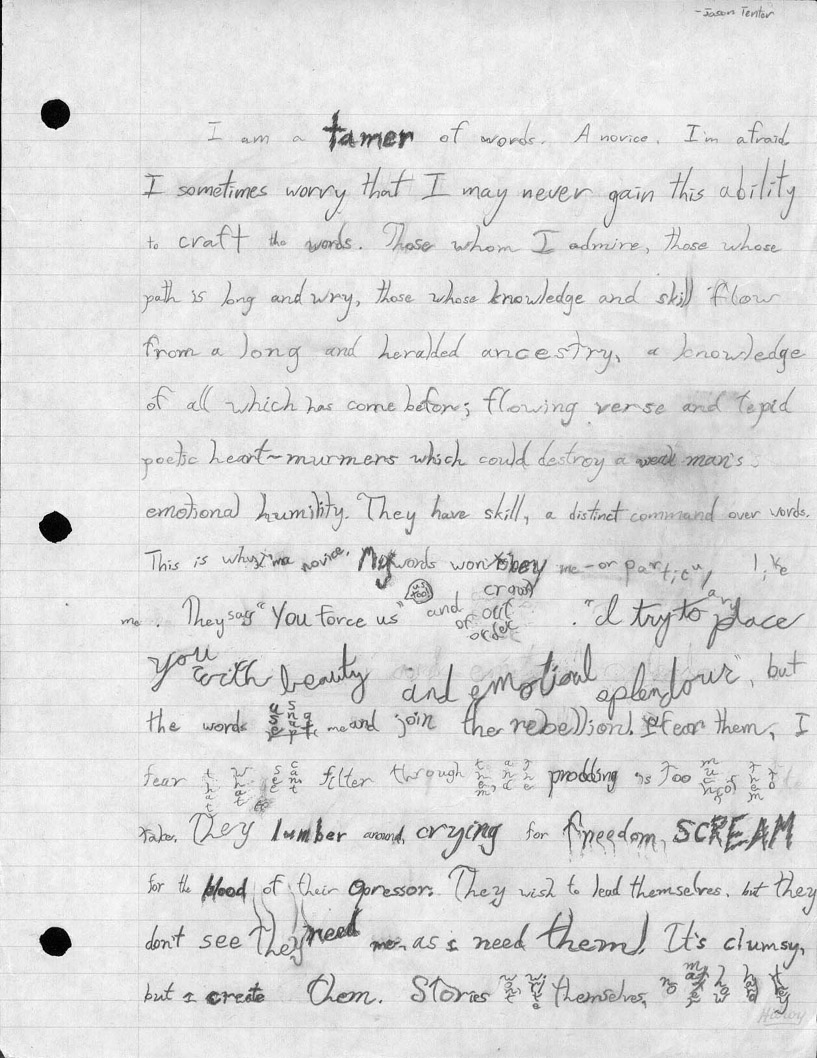 -Jason Tenter
I am a tamer of words. A novice. I'm afraid.
I sometimes worry that I may never gain this ability
to craft the words. Those whom I admire, those whose
path is long and wry, those whose knowledge and skill flow
from a long and heralded ancestry, a knowledge
of all which has come before; flowing verse and tepid
poetic heart-murmers which could destroy a weak man's
emotional humility. They have skill, a distinct command over words.
This is why I'm a novice. My words won't obey me-or particulary like
me. They say "You force us" us too! and crowd out of order. "I try to place
you with beauty and emotional splendour", but
the words just snap at me and join the rebellion. I fear them, I
fear that what I see can't filter through them, and the prodding is too much for them to
take. They lumber around, crying for freedom, SCREAM
for the blood of their opressor. They wish to lead themselves. but they
don't see they need me, as I need them!. It's clumsy,
but I create them. Stories won't write themselves, no matter how hard they